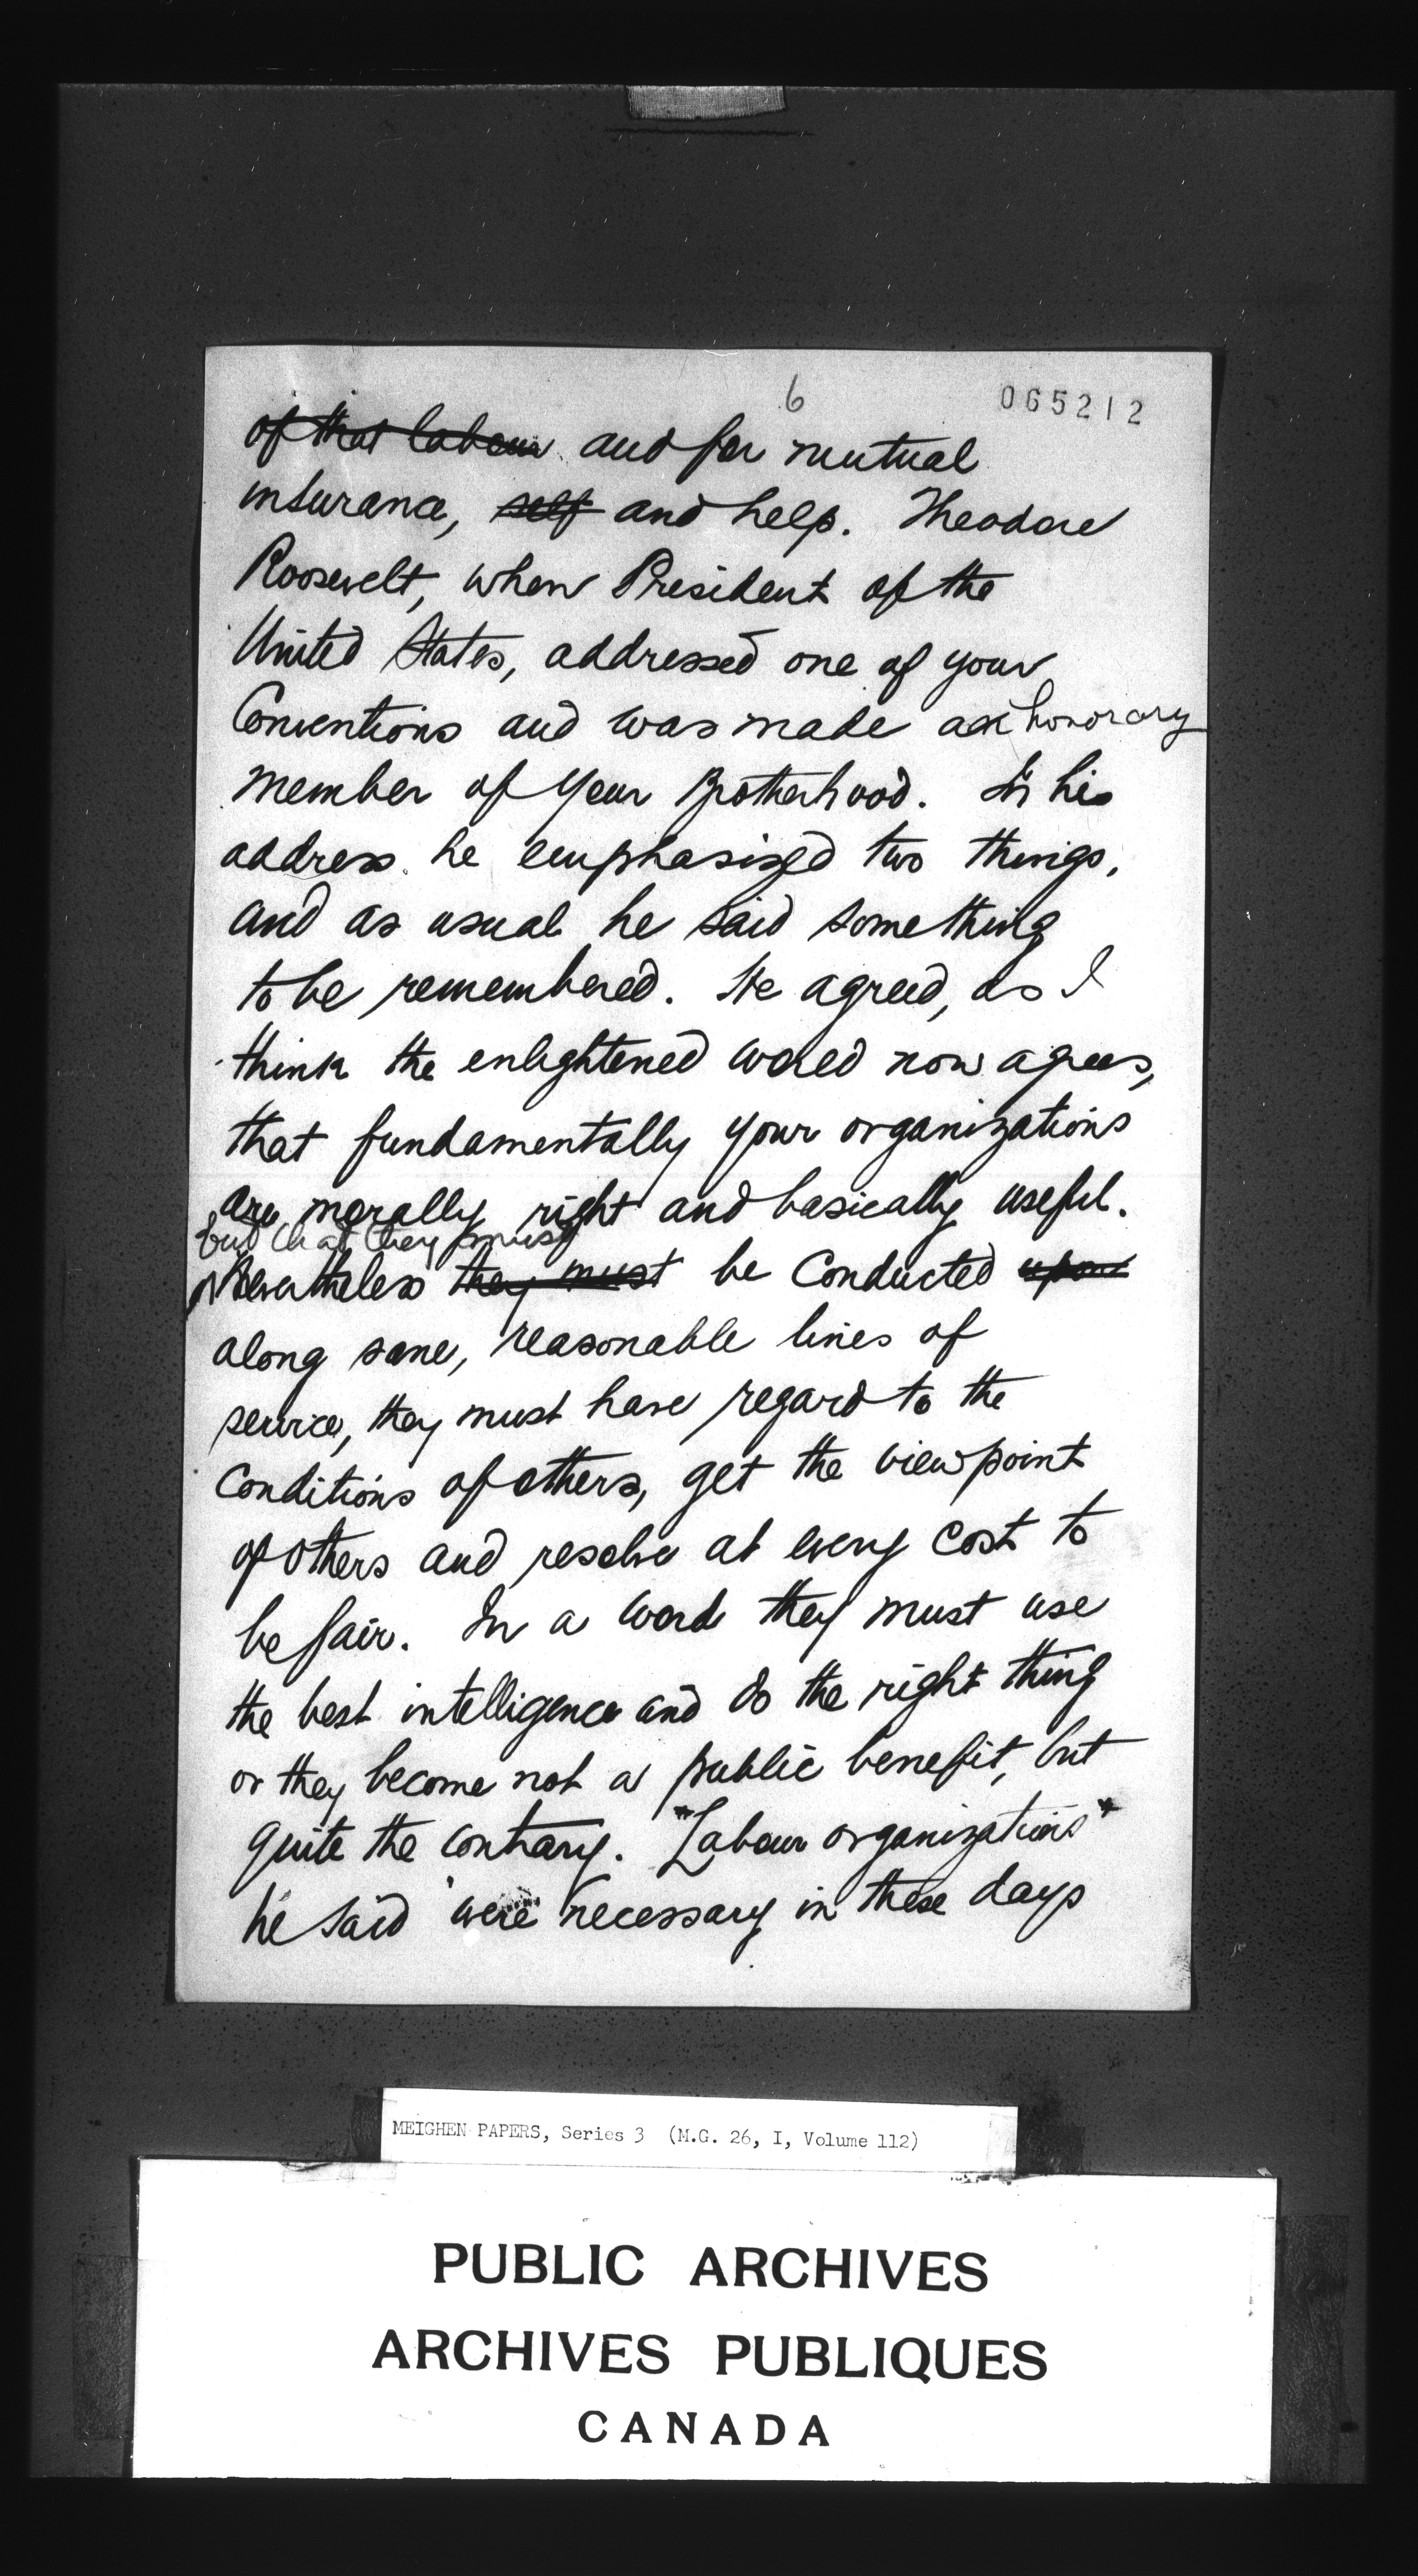 6
065212
of that labour and for mutual
insurance, self and help. Theodore
Roosevelt, when President of the
United States, addressed one of your
Conventions and was made an honorary
member of your Brotherhood. In his
address he emphasised two things,
and as usual he said something
to be remembered. He agreed, as I
think the enlightened world now agrees,
that fundamentally your organizations
are morally right and basically useful.
but that they must
Nevertheless they must be conducted upon
along sane, reasonable lines of
service, they must have regard to the
Conditions of others, get the viewpoint
of others and resolve at every cost to
be fair. In a word they must use
the best intelligence and do the right thing
or they become not a public benefit, but
quite the contrary. "Labour organizations"
he said "were necessary in these days
MEIGHEN PAPERS, Series 3 (M.G. 26, I, Volume 112)
PUBLIC ARCHIVES
ARCHIVES PUBLIQUES
CANADA